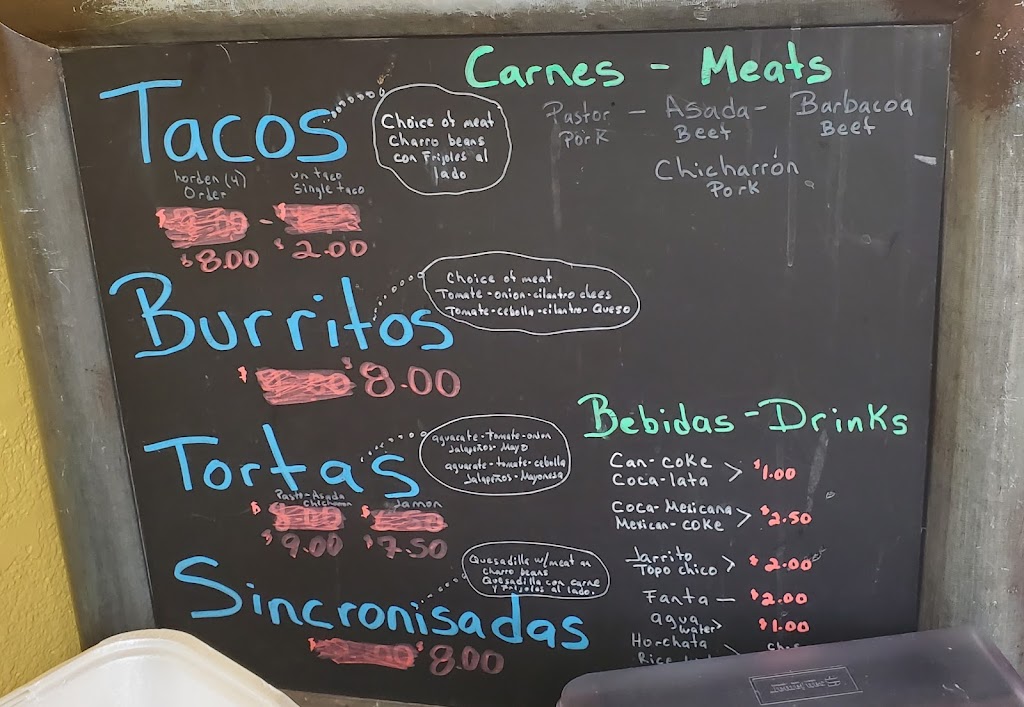 Tacos
Choice of meat
Charro beans
con Frijoles al
lado
horden (4)
Order
un taco
Single taco
$8.00
$2.00
Carnes - Meats
Pastor - Asada - Barbacoa
Pork Beef Beef
Chicharrón
Pork
Burritos
Choice of meat
Tomate-onion-cilantro chees
Tomate-cebolla-cilantro-Queso
$8.00
Tortas
aguacate-tomate-onion
Jalapeños-Mayo
aguacate-tomate-cebolla
Jalapeños-Mayonesa
Pasto-Asada
Jamon
$9.00
$7.50
Sincronisadas
Quesadilla w/meat
Charro beans
Quesadilla con carne
y Frijoles al lado.
8.00
Bebidas-Drinks
Can-coke
Coca-lata
> $1.00
Coca-Mexicana
Mexican-coke
> $2.50
Jarrito
Topo chico
> $2.00
Fanta — $2.00
agua
water
> $1.00
Horchata
Rice